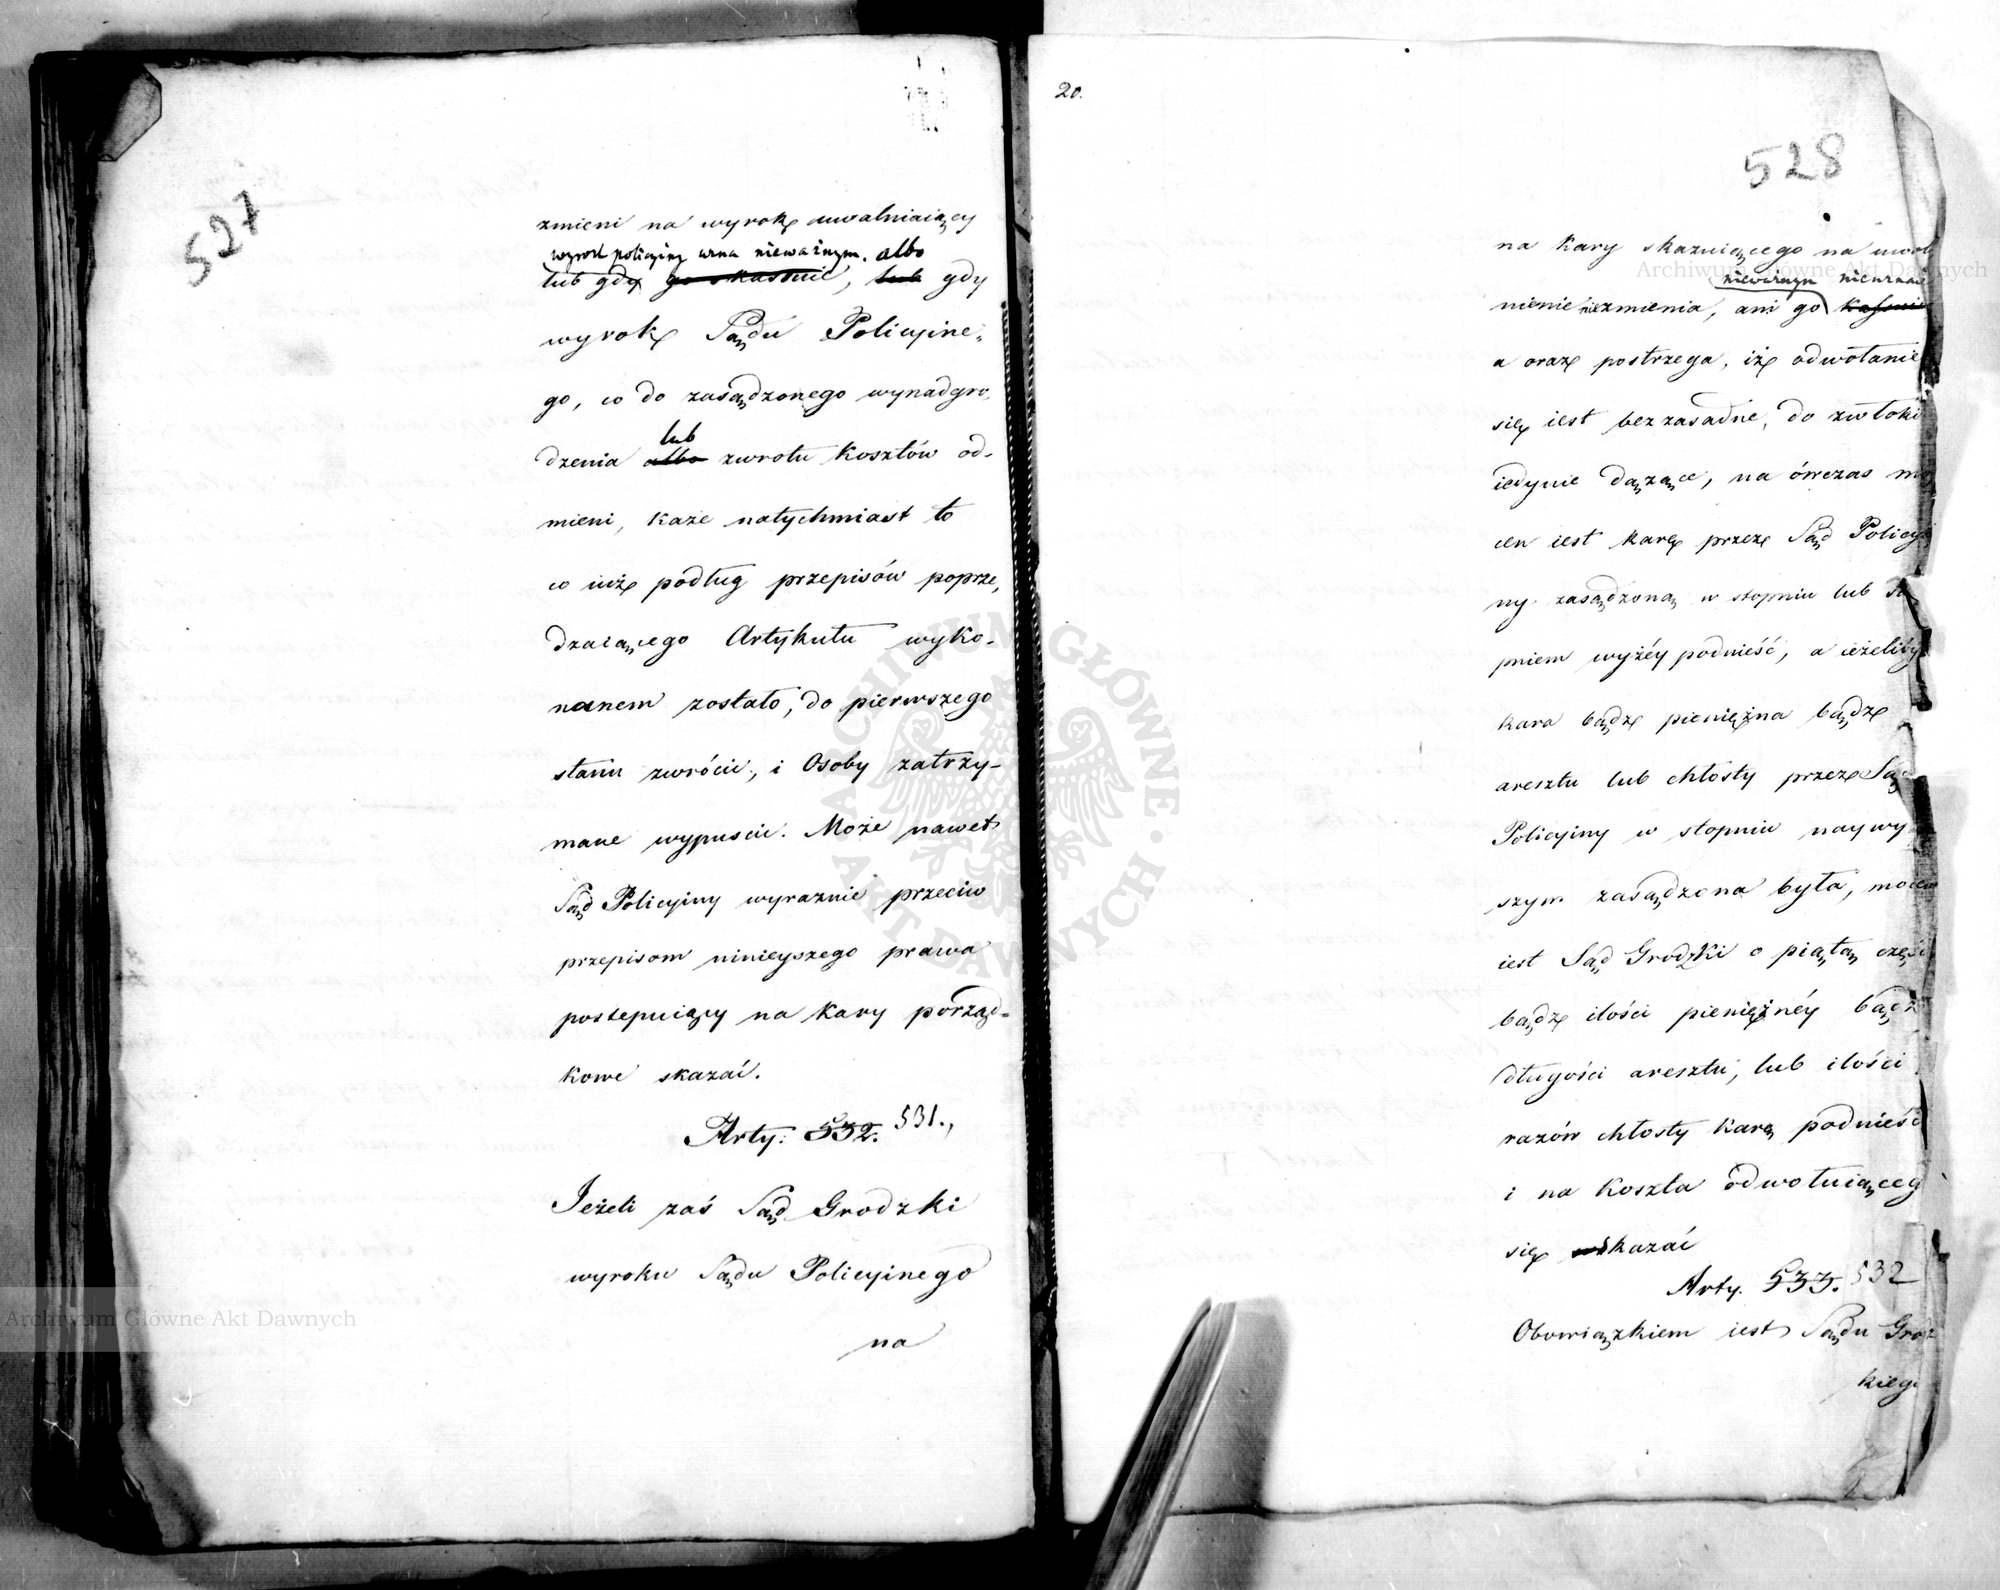 527
zmieni na wyrok uwalniaiący
wyrok policyiny uzna nieważnym. albo
lub gdy go skassuie, lub gdy
wyrok Sądu Policyine-
go, co do zasądzonego wynadgro-
lub
dzenia albo zwrotu kosztów od-
mieni, każe natychmiast to
co iuż podług przepisów poprze-
dzaiącego Artykułu wyko-
nanem zostało, do pierwszego
stanu zwrócić, i Osoby zatrzy-
mane wypuscić. Może nawet
Sąd Policyiny wyraznie przeciw
przepisom ninieyszego prawa
postepuiący na kary porząd-
kowe skazać.
Arty: 532. 531.,
Jeżeli zaś Sąd Grodzki
wyroku Sądu Policyinego
na
20.
528
na kary skazuiącego na uwol
nieważnym nieuzna
nienie niezmienia, ani go kassuie
a oraz postrzega, iż odwołanie
się iest bezzasadne, do zwłoki
iedynie dążące, na ówczas mo
cen iest karę przez Sąd Policyi
ny zasądzoną w stopniu lub sto
pniem wyżéy podnieść, a ieżeliby
kara bądz pieniężna bądz
aresztu lub chłosty przez Sąd
Policyiny w stopniu naywy
szym zasądzona była, mocen
iest Sąd Grodzki o piątą część
bądz ilości pieniężnéy bądz
długości aresztu, lub ilości
razów chłosty karę podnieść
i na koszta odwołuiąceg
się skazać
Arty. 533. 532
Obowiązkiem iest Sądu Grodz
kieg
Archiwum Główne Akt Dawnych
Archiwum Główne Akt Dawnych
ARCHIWUM GŁÓWNE AKT DAWNYCH